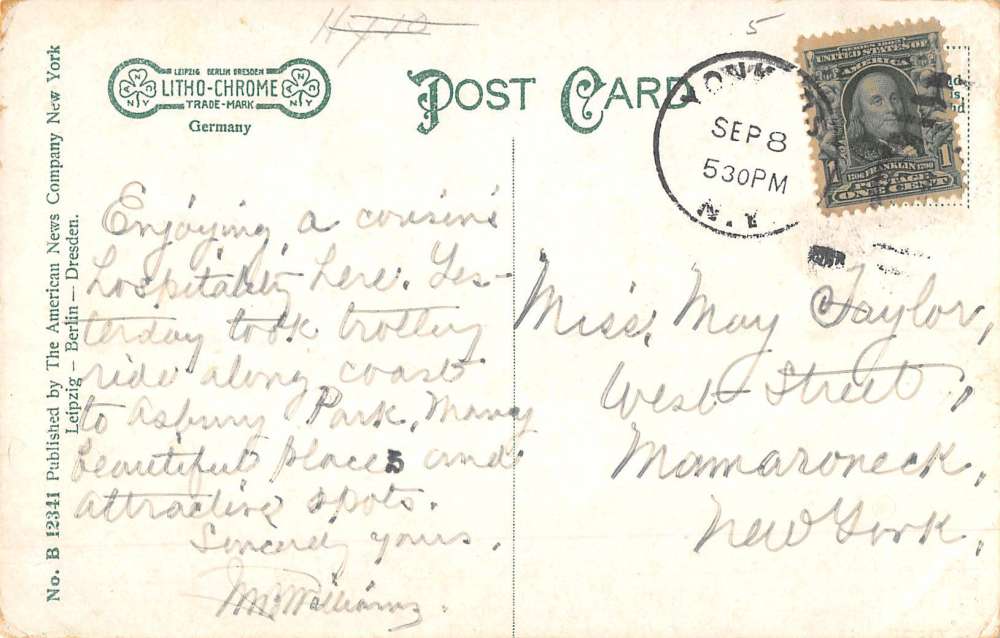 5
LEIPZIG BERLIN DRESDEN
LITHO-CHROME
TRADE-MARK
Germany
POST CARD
YONK
SEP 8
530PM
N.Y.
SERIES 1902
UNITED STATES OF
AMERICA
1706 FRANKLIN 1790
POSTAGE
1 ONE CENT 1
No. B 12341 Published by The American News Company New York
Leipzig – Berlin – Dresden.
Enjoying a cousin's
hospitality here. Yes-
terday took trolley
ride along coast
to Asbury Park, Many
beautiful places and
attractive spots.
Sincerely yours,
Williams.
Miss, May Taylor,
West-Street,
Mamaroneck,
New York,